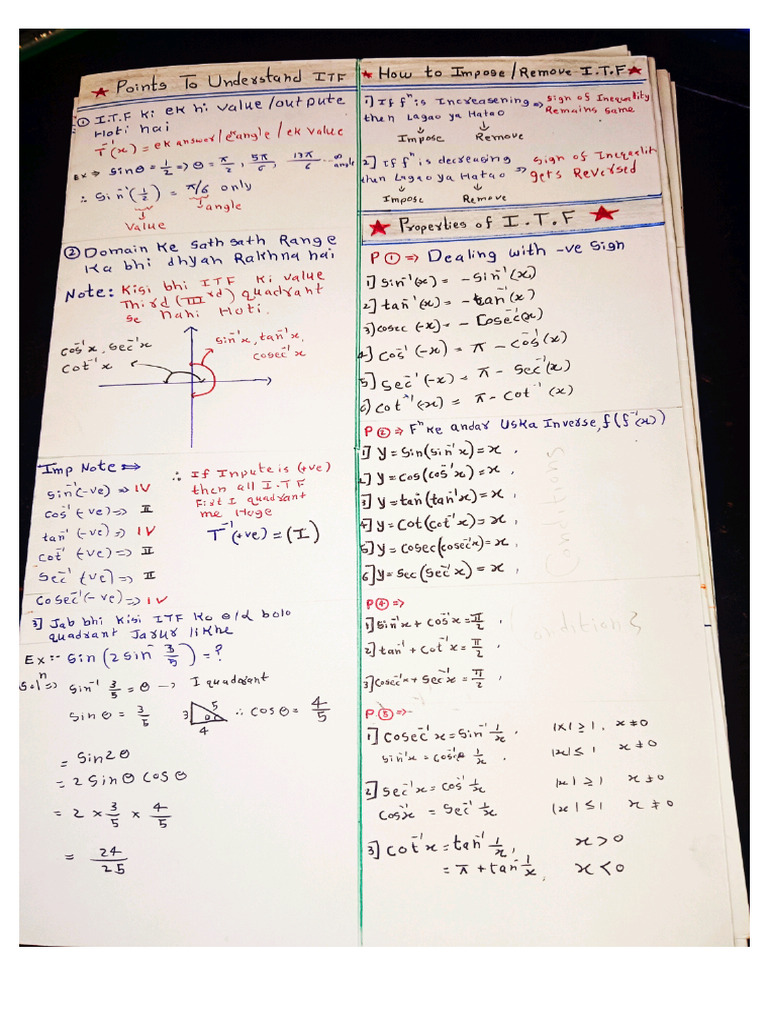 ★ Points To Understand ITF
① I.T.F Ki ek hi value/outpute
Hoti hai
T⁻¹(x) = ek answer/ek angle/ek value
Ex => sinθ = 1/2 => θ = π/2, 5π/6, 13π/6 ...∞ angle
∴ Sin⁻¹(1/2) = π/6 only
↓ Value ↓ angle
② Domain Ke Sath sath Range
Ka bhi dhyan Rakhna hai
Note: Kisi bhi ITF Ki value
Third (IIIrd) quadrant
se Nahi Hoti.
cos⁻¹x, sec⁻¹x
cot⁻¹x
sin⁻¹x, tan⁻¹x,
cosec⁻¹x
Imp Note =>
sin⁻¹(-ve) => IV
cos⁻¹(-ve) => II
tan⁻¹(-ve) => IV
cot⁻¹(-ve) => II
sec⁻¹(-ve) => II
cosec⁻¹(-ve) => IV
∴ If Inpute is (+ve)
then all I.T.F
First I quadrant
me Hoge
T⁻¹(+ve) = (I)
3] Jab bhi Kisi ITF Ko old bolo
quadrant Jarur likhe
Ex:- sin(2 sin⁻¹ 3/5) = ?
Solⁿ => sin⁻¹ 3/5 = θ → I quadrant
sinθ = 3/5 3 5 θ 4 ∴ cosθ = 4/5
= sin2θ
= 2 sinθ cosθ
= 2 × 3/5 × 4/5
= 24/25
★ How to Impose/Remove I.T.F ★
1] If fⁿ is Increasening => sign of Inequality
then Lagao ya Hatao Remains same
↓ Impose ↓ Remove
2] If fⁿ is decreasing => sign of Inequalit
then Lagao ya Hatao gets Reversed
↓ Impose ↓ Remove
★ Properties of I.T.F ★
P ① => Dealing with -ve Sign
1] sin⁻¹(x) = -sin⁻¹(x)
2] tan⁻¹(x) = -tan⁻¹(x)
3] cosec⁻¹(-x) = -cosec⁻¹(x)
4] cos⁻¹(-x) = π - cos⁻¹(x)
5] sec⁻¹(-x) = π - sec⁻¹(x)
6] cot⁻¹(-x) = π - cot⁻¹(x)
P ② => Fⁿ Ke andar Uska Inverse, f(f⁻¹(x))
1] y = sin(sin⁻¹x) = x,
2] y = cos(cos⁻¹x) = x,
3] y = tan(tan⁻¹x) = x,
4] y = cot(cot⁻¹x) = x,
5] y = cosec(cosec⁻¹x) = x,
6] y = sec(sec⁻¹x) = x,
P ④ =>
1] sin⁻¹x + cos⁻¹x = π/2,
2] tan⁻¹ + cot⁻¹x = π/2,
3] cosec⁻¹x + sec⁻¹x = π/2,
P ⑤ =>
1] cosec⁻¹x = sin⁻¹ 1/x, |x| ≥ 1, x ≠ 0
sin⁻¹x = cosec⁻¹ 1/x, |x| ≤ 1 x ≠ 0
2] sec⁻¹x = cos⁻¹ 1/x |x| ≥ 1 x ≠ 0
cos⁻¹x = sec⁻¹ 1/x |x| ≤ 1 x ≠ 0
3] cot⁻¹x = tan⁻¹ 1/x, x > 0
= π + tan⁻¹ 1/x, x < 0